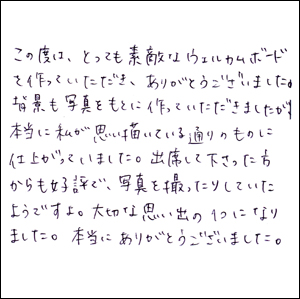 この度は、とっても素敵なウェルカムボード
を作っていただき、ありがとうございました。
背景も写真をもとに作っていただきましたが、
本当に私が思い描いている通りのものに
仕上がっていました。出席して下さった方
からも好評で、写真を撮ったりしていた
ようですよ。大切な思い出の1つになり
ました。本当にありがとうございました。